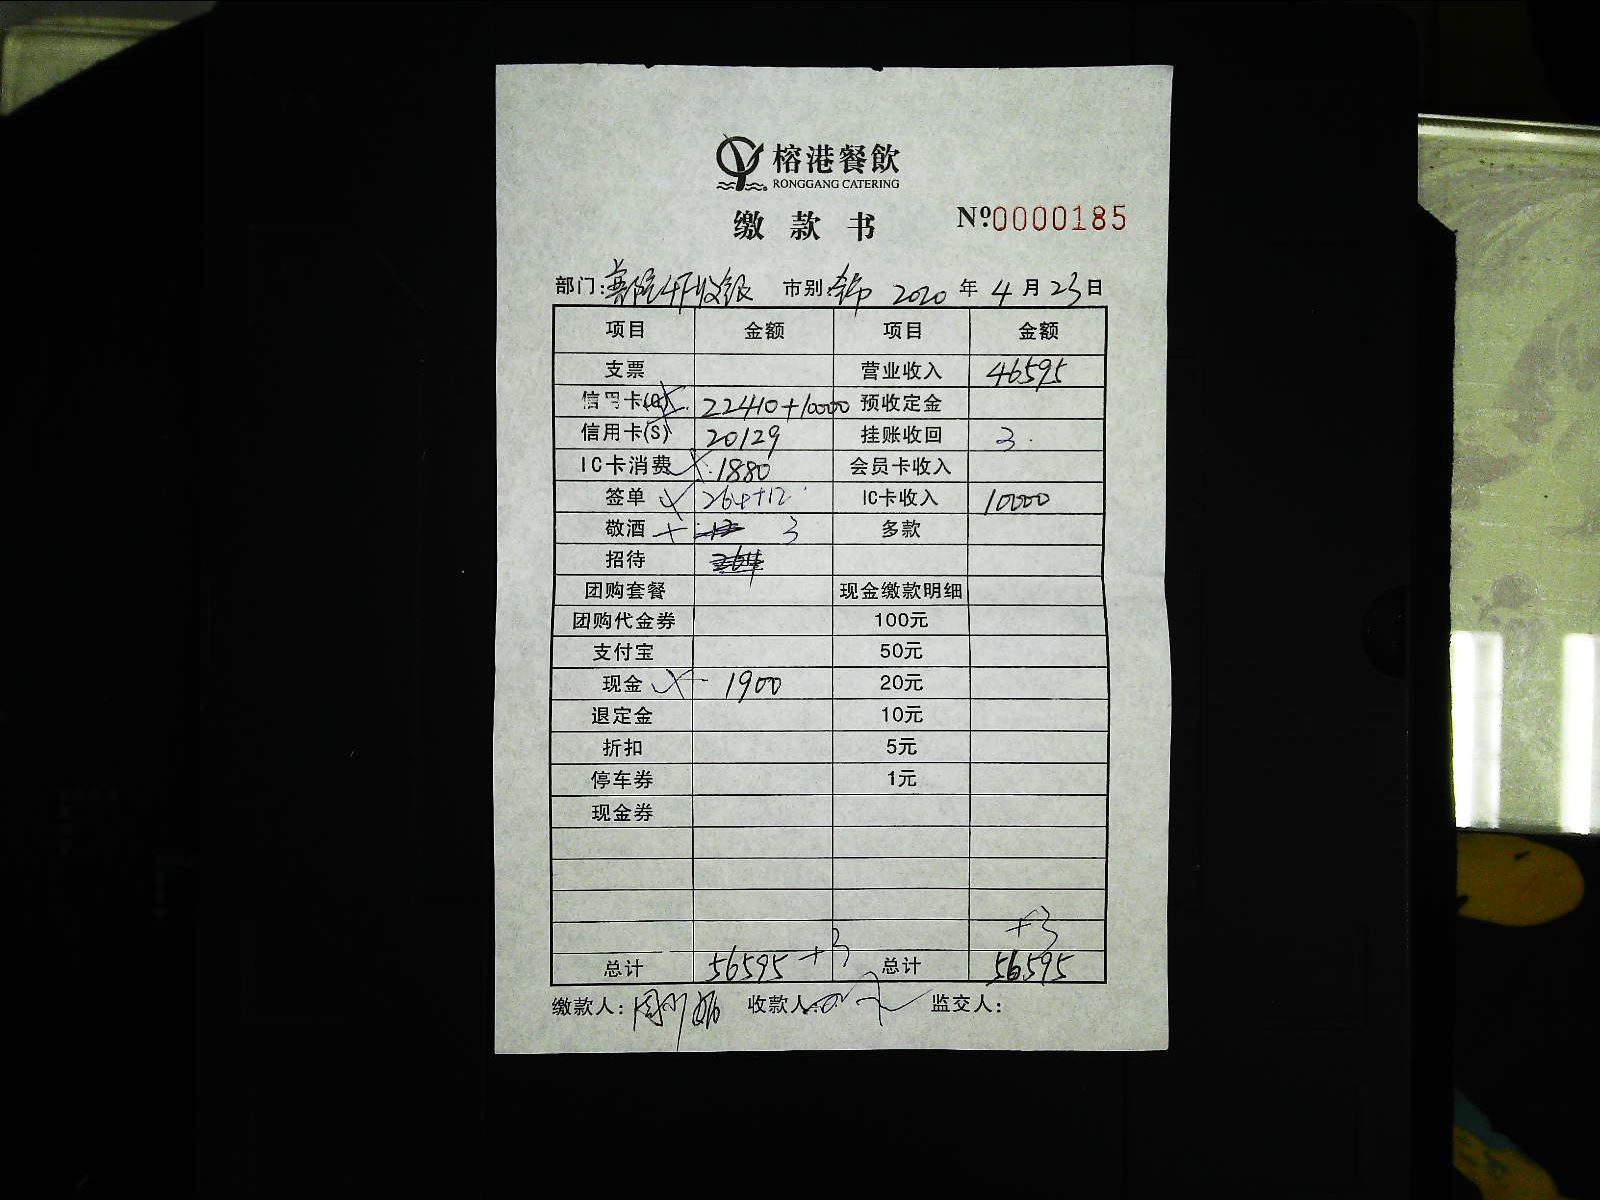 榕港餐飲
RONGGANG CATERING
缴款书 Nº0000185
部门: 市别: 2020 年 4 月 23 日
项目 金额 项目 金额
支票 营业收入 46595
信用卡(Q) 22410+10000 预收定金
信用卡(S) 20129 挂账收回 3
IC卡消费 1880 会员卡收入
签单 264+12 IC卡收入 10000
敬酒 3 多款
招待
团购套餐 现金缴款明细
团购代金券 100元
支付宝 50元
现金 1900 20元
退定金 10元
折扣 5元
停车券 1元
现金券
+3
总计 56595 +3 总计 56595
缴款人: 收款人: 监交人: